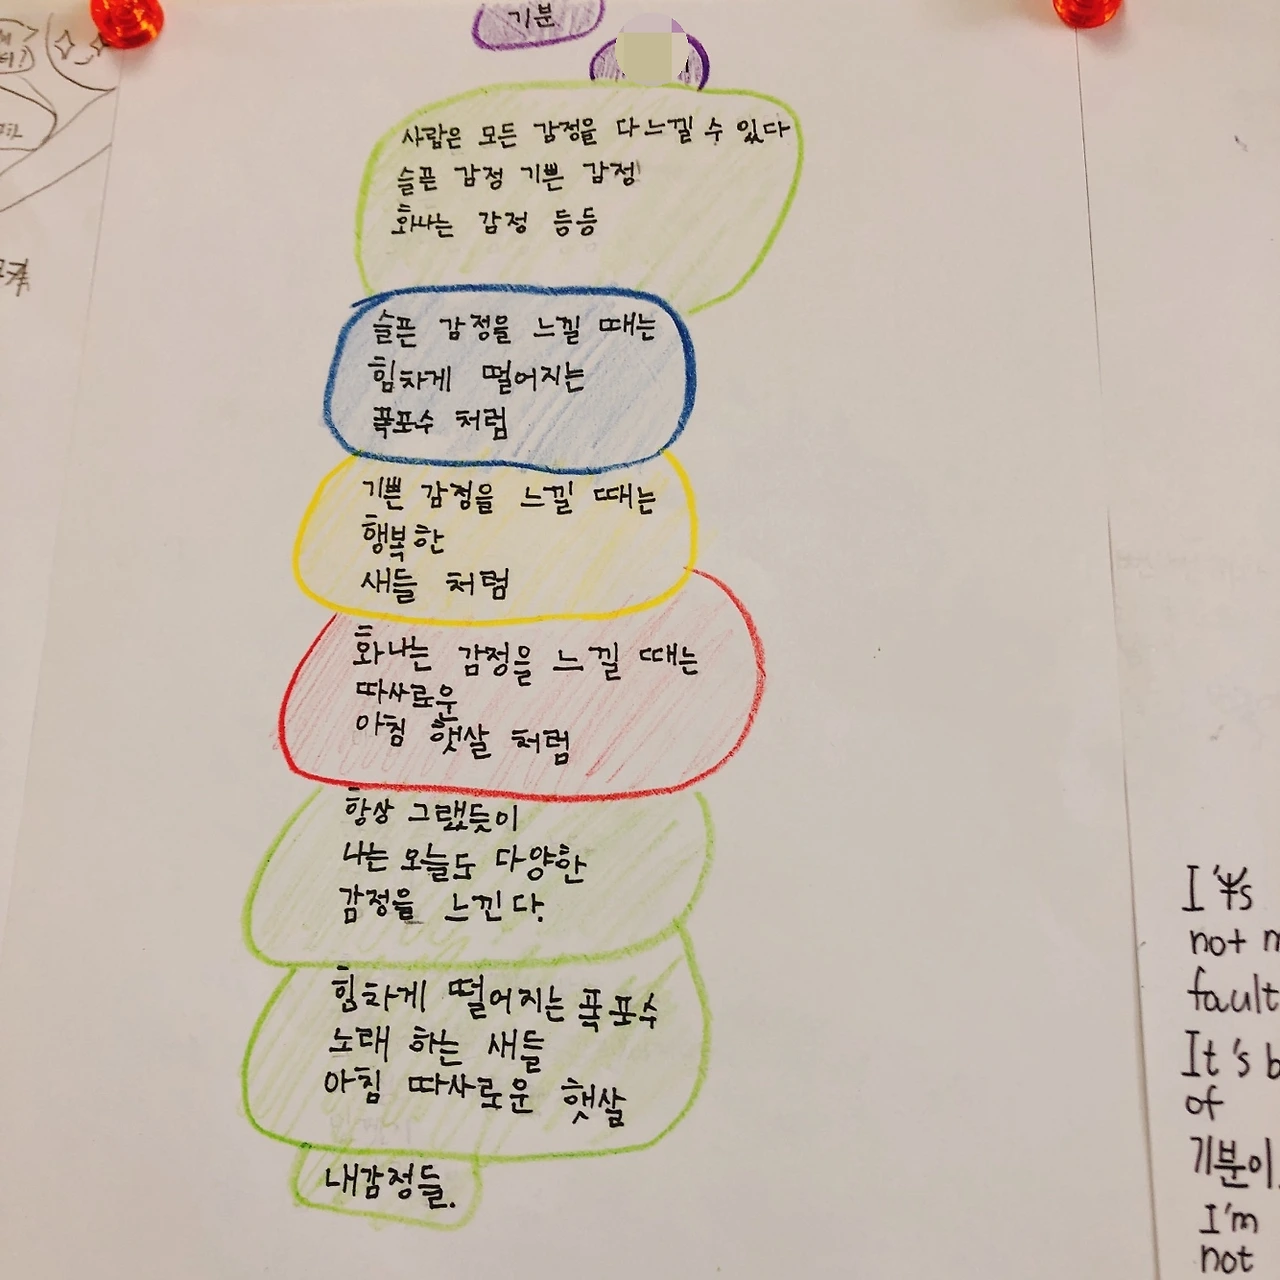 기분
사람은 모든 감정을 다 느낄 수 있다
슬픈 감정 기쁜 감정
화나는 감정 등등
슬픈 감정을 느낄 때는
힘차게 떨어지는
폭포수 처럼
기쁜 감정을 느낄 때는
행복한
새들 처럼
화나는 감정을 느낄 때는
따사로운
아침 햇살 처럼
항상 그랬듯이
나는 오늘도 다양한
감정을 느낀다.
힘차게 떨어지는 폭포수
노래 하는 새들
아침 따사로운 햇살
내감정들.
not
fault
It's
of
기분이
I'm
not